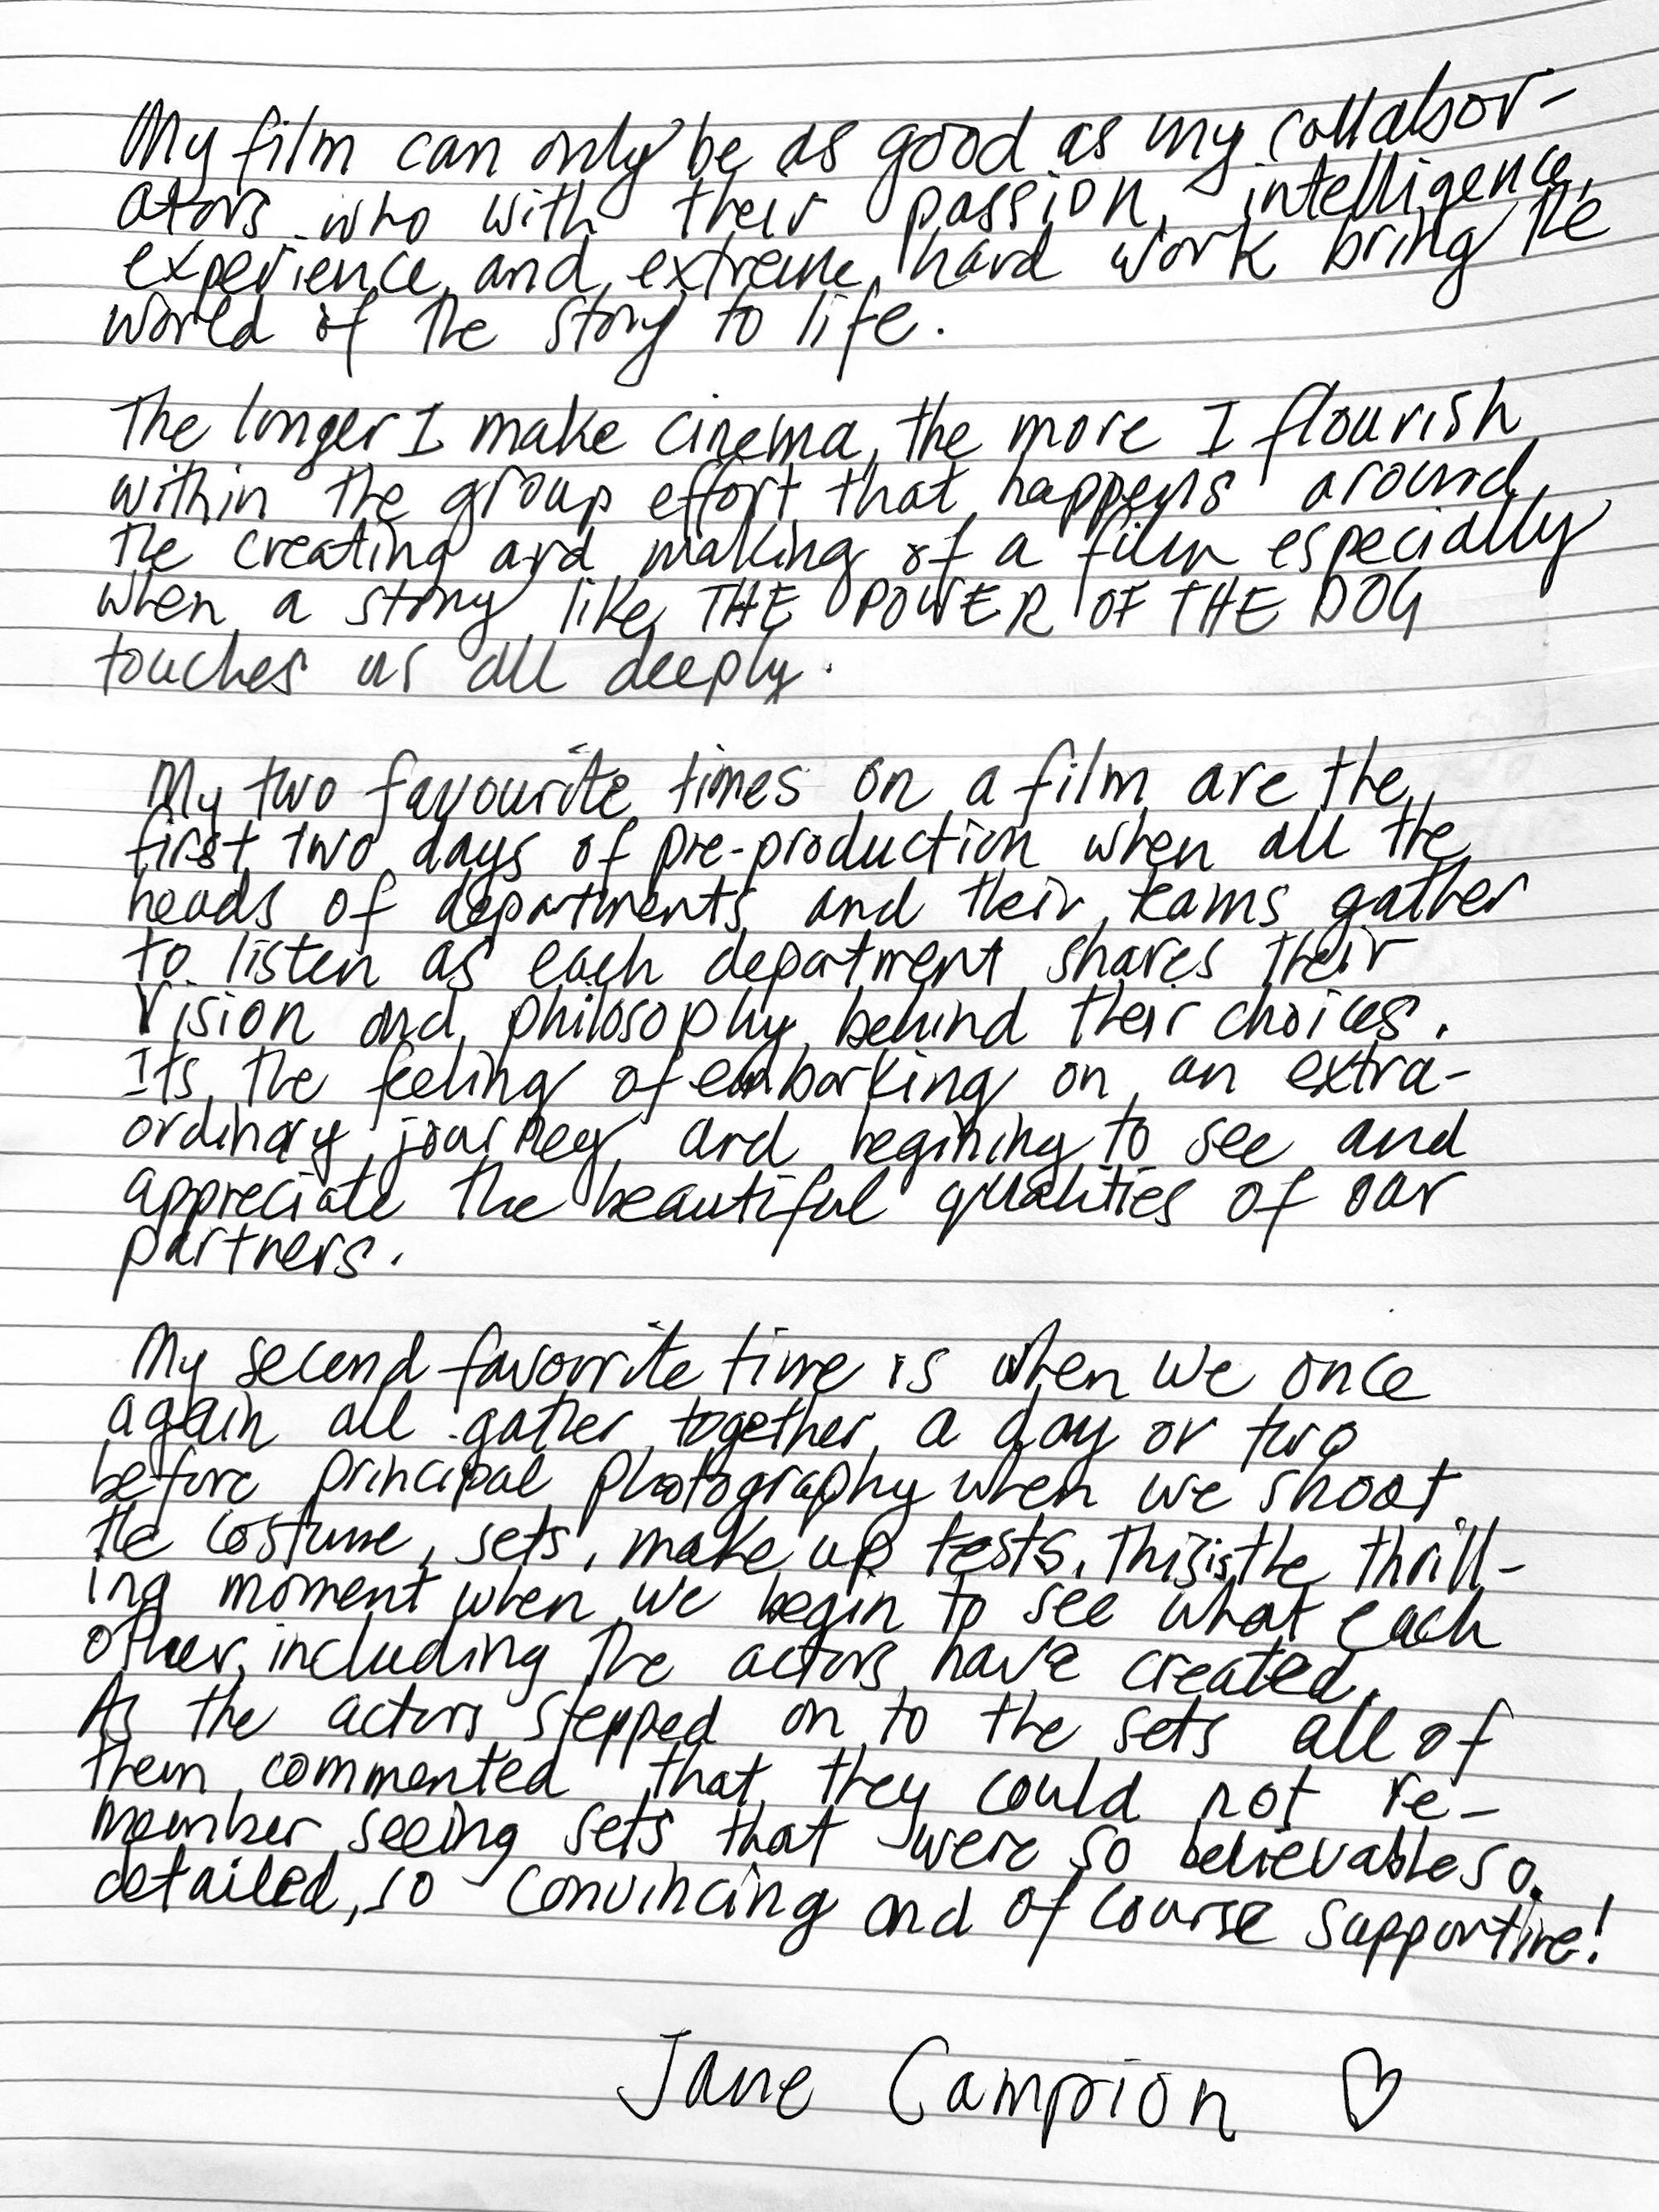 My film can only be as good as my collabor-
ators who with their passion, intelligence,
experience and extreme hard work bring the
world of the story to life.
The longer I make cinema, the more I flourish
within the group effort that happens around
the creating and making of a film especially
when a story like THE POWER OF THE DOG
touches us all deeply.
My two favourite times on a film are the
first two days of pre-production when all the
heads of departments and their teams gather
to listen as each department shares their
vision and philosophy behind their choices.
Its the feeling of embarking on an extra-
ordinary journey and begining to see and
appreciate the beautiful qualities of our
partners.
My second favourite time is when we once
again all gather together a day or two
before principal photography when we shoot
the costume, sets, make up tests. This is the thrill-
ing moment when we begin to see what each
other, including the actors have created.
As the actors stepped on to the sets all of
them commented that they could not re-
member seeing sets that were so believable so
detailed, so convincing and of course supportive!
Jane Campion ♡